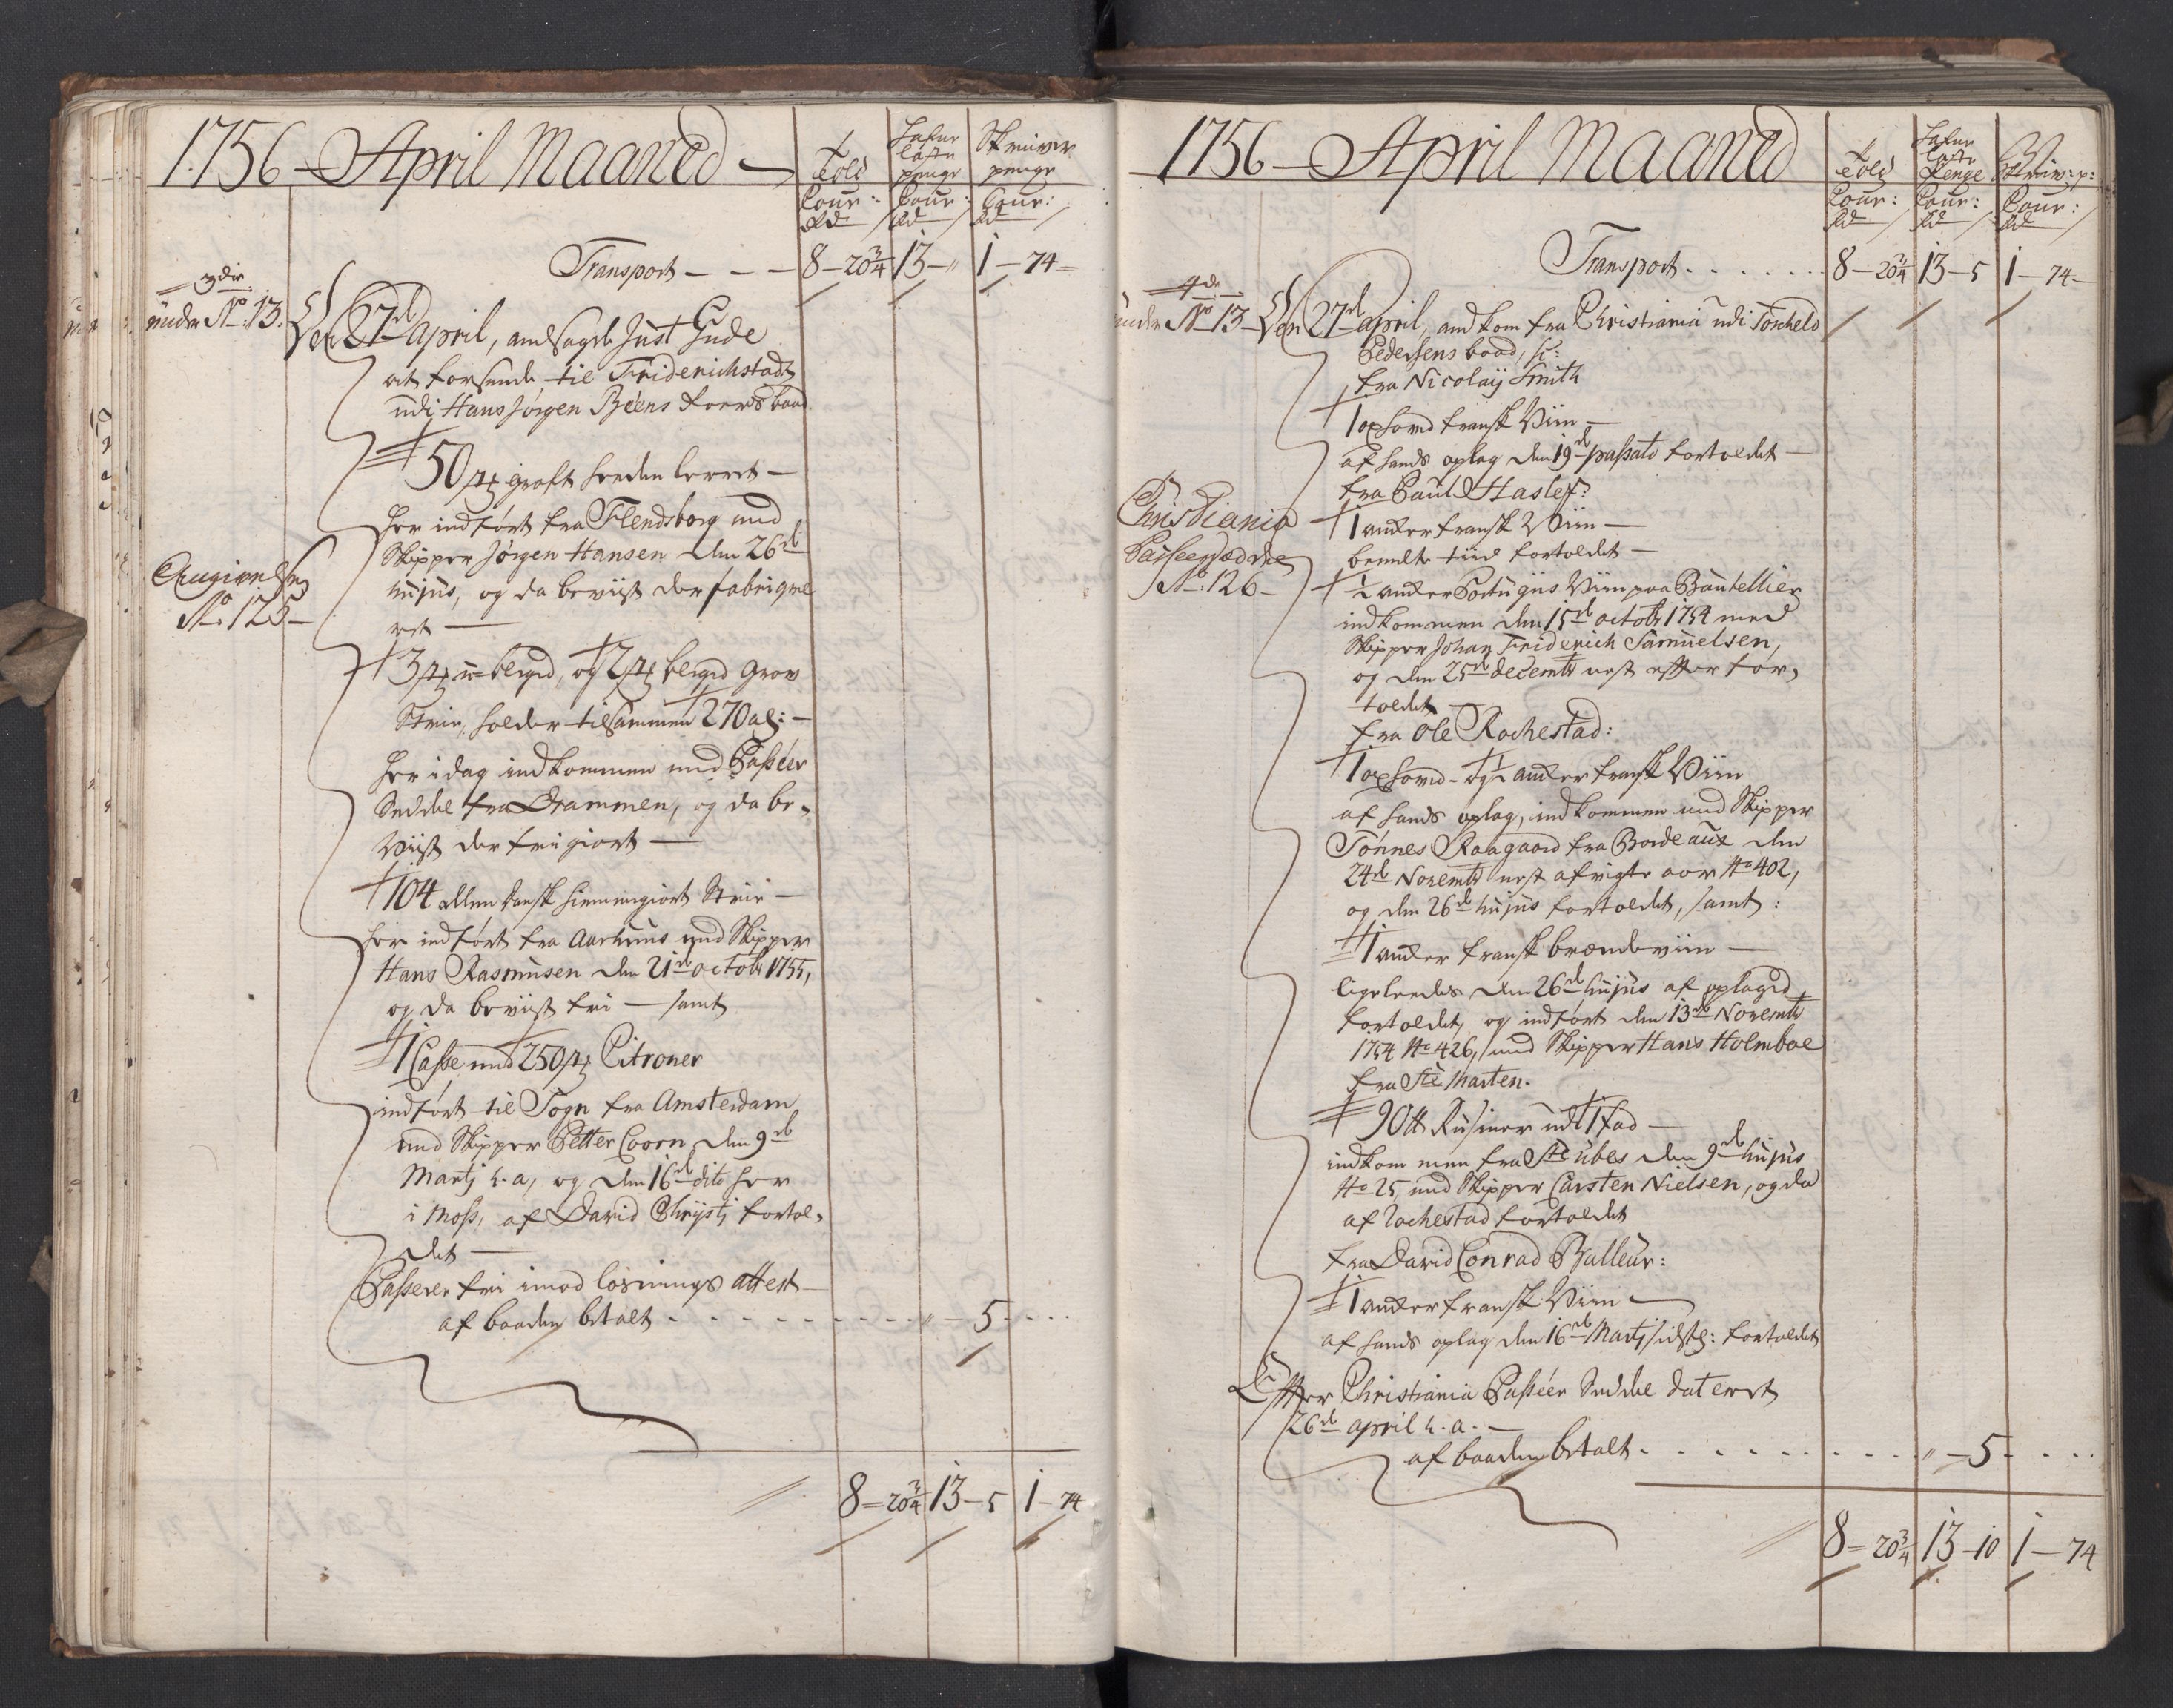 1756 – April Maaned –
Told
Cour:
Rd
Hafne
laste
penge
Cour:
Rd
Skriver
penge
Cour:
Rd
Transport – – – 8 – 20 3/4 13 – " 1 – 74 –
3die
under No 13.
Den 27de april, andsagde Just Gude
at forsende til Friderichstadt
udi Hans Jørgen Béens baad
50 groft heeden lerret –
her indført fra Flendsborg med
Skipper Jørgen Hansen den 26de
hujus, og da beviist der fabriqve
ret –
Angivelse
No 125 –
3 bleged, og 2 bleged Grov
Strie, holder tilsammen 270 al: –
her i dag indkommen med Passéer
Seddel fra Drammen, og da be-
viist der frigiort –
104 allen dansk hiemmegiort Strie –
her indført fra Aarhuus med Skipper
Hans Rasmusen den 21de octobr 1755,
og da beviist fri – samt
1 Casse med 250 Citroner
indført til Sogn fra Amsterdam
med Skipper Petter Coorn den 9de
Martj h. a, og den 16de dito her
i Moss, af David Chrystj fortol-
det –
Passerer fri imod losnings attest
af baaden betalt . . . . . . . . " – 5 . . . .
8 – 20 3/4 13 – 5 1 – 74
1756 – April Maaned
Told
Cour:
Rd
Hafne
laste
Penge
Cour:
Rd
Skriv: p:
Cour:
Rd
Transport . . . . . . 8 – 20 3/4 13 – 5 1 – 74 –
4de
under No 13 –
Den 27de april, andkom fra Christiania udi
Pedersens baad, sc:
fra Nicolaÿ Smith
1 oxhoved fransk Viin –
af hands oplag den 19de passato fortoldet –
fra Paul Haslef:
1 anker fransk Viin –
bemelte tiid fortoldet –
Christiania
Passeersedde
No 126 –
1/2 anker Portugiis Viin paa Bautellier
indkommen den 15de octobr 1754 med
Skipper Johan Friderich Samuelsen,
og den 25de decembr nest efter for-
toldet –
fra Ole Rochestad:
1 oxhoved – og 1/2 anker fransk Viin
af hands oplag, indkommen med Skipper
Tönnes Raagaard fra Bordeaux den
24de Novembr nest afvigte aar No 402,
og den 26de hujus fortoldet, samt:
1 anker fransk brændeviin –
ligeleedes den 26de hujus af oplaged
fortoldet, og indført den 13de Novembr
1754 No 426, med Skipper Hans Holmboe
fra Ste Marten.
90 tt Rusiner udi 1 fad –
indkommen fra Ste übes den 9de hujus
No 25, med Skipper Carsten Nielsen, og da
af Rochestad fortoldet
fra David Conrad Balleur:
1 anker fransk Viin –
af hands oplag den 16de Martj sidstl: fortoldet
Efter Christiania Passéer Seddel dateret
26de april h. a. –
af baaden betalt . . . . . . . . " – 5 . . . .
8 – 20 3/4 13 – 10 1 – 74